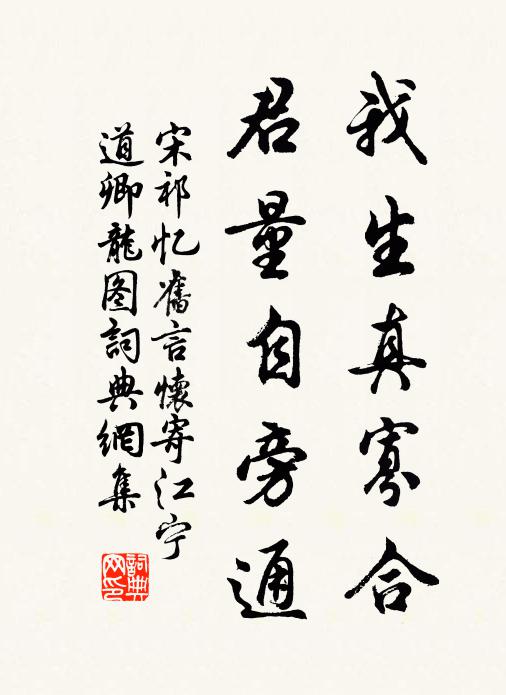 我生真寡合
君量自旁通
宋祁忆舊言懷寄江宁
道卿龍图詞典網集
詞典网印